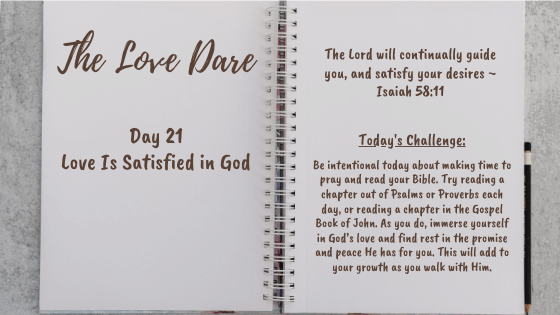 The Love Dare
Day 21
Love Is Satisfied in God
The Lord will continually guide
you, and satisfy your desires ~
Isaiah 58:11
Today's Challenge:
Be intentional today about making time to
pray and read your Bible. Try reading a
chapter out of Psalms or Proverbs each
day, or reading a chapter in the Gospel
Book of John. As you do, immerse yourself
in God's love and find rest in the promise
and peace He has for you. This will add to
your growth as you walk with Him.